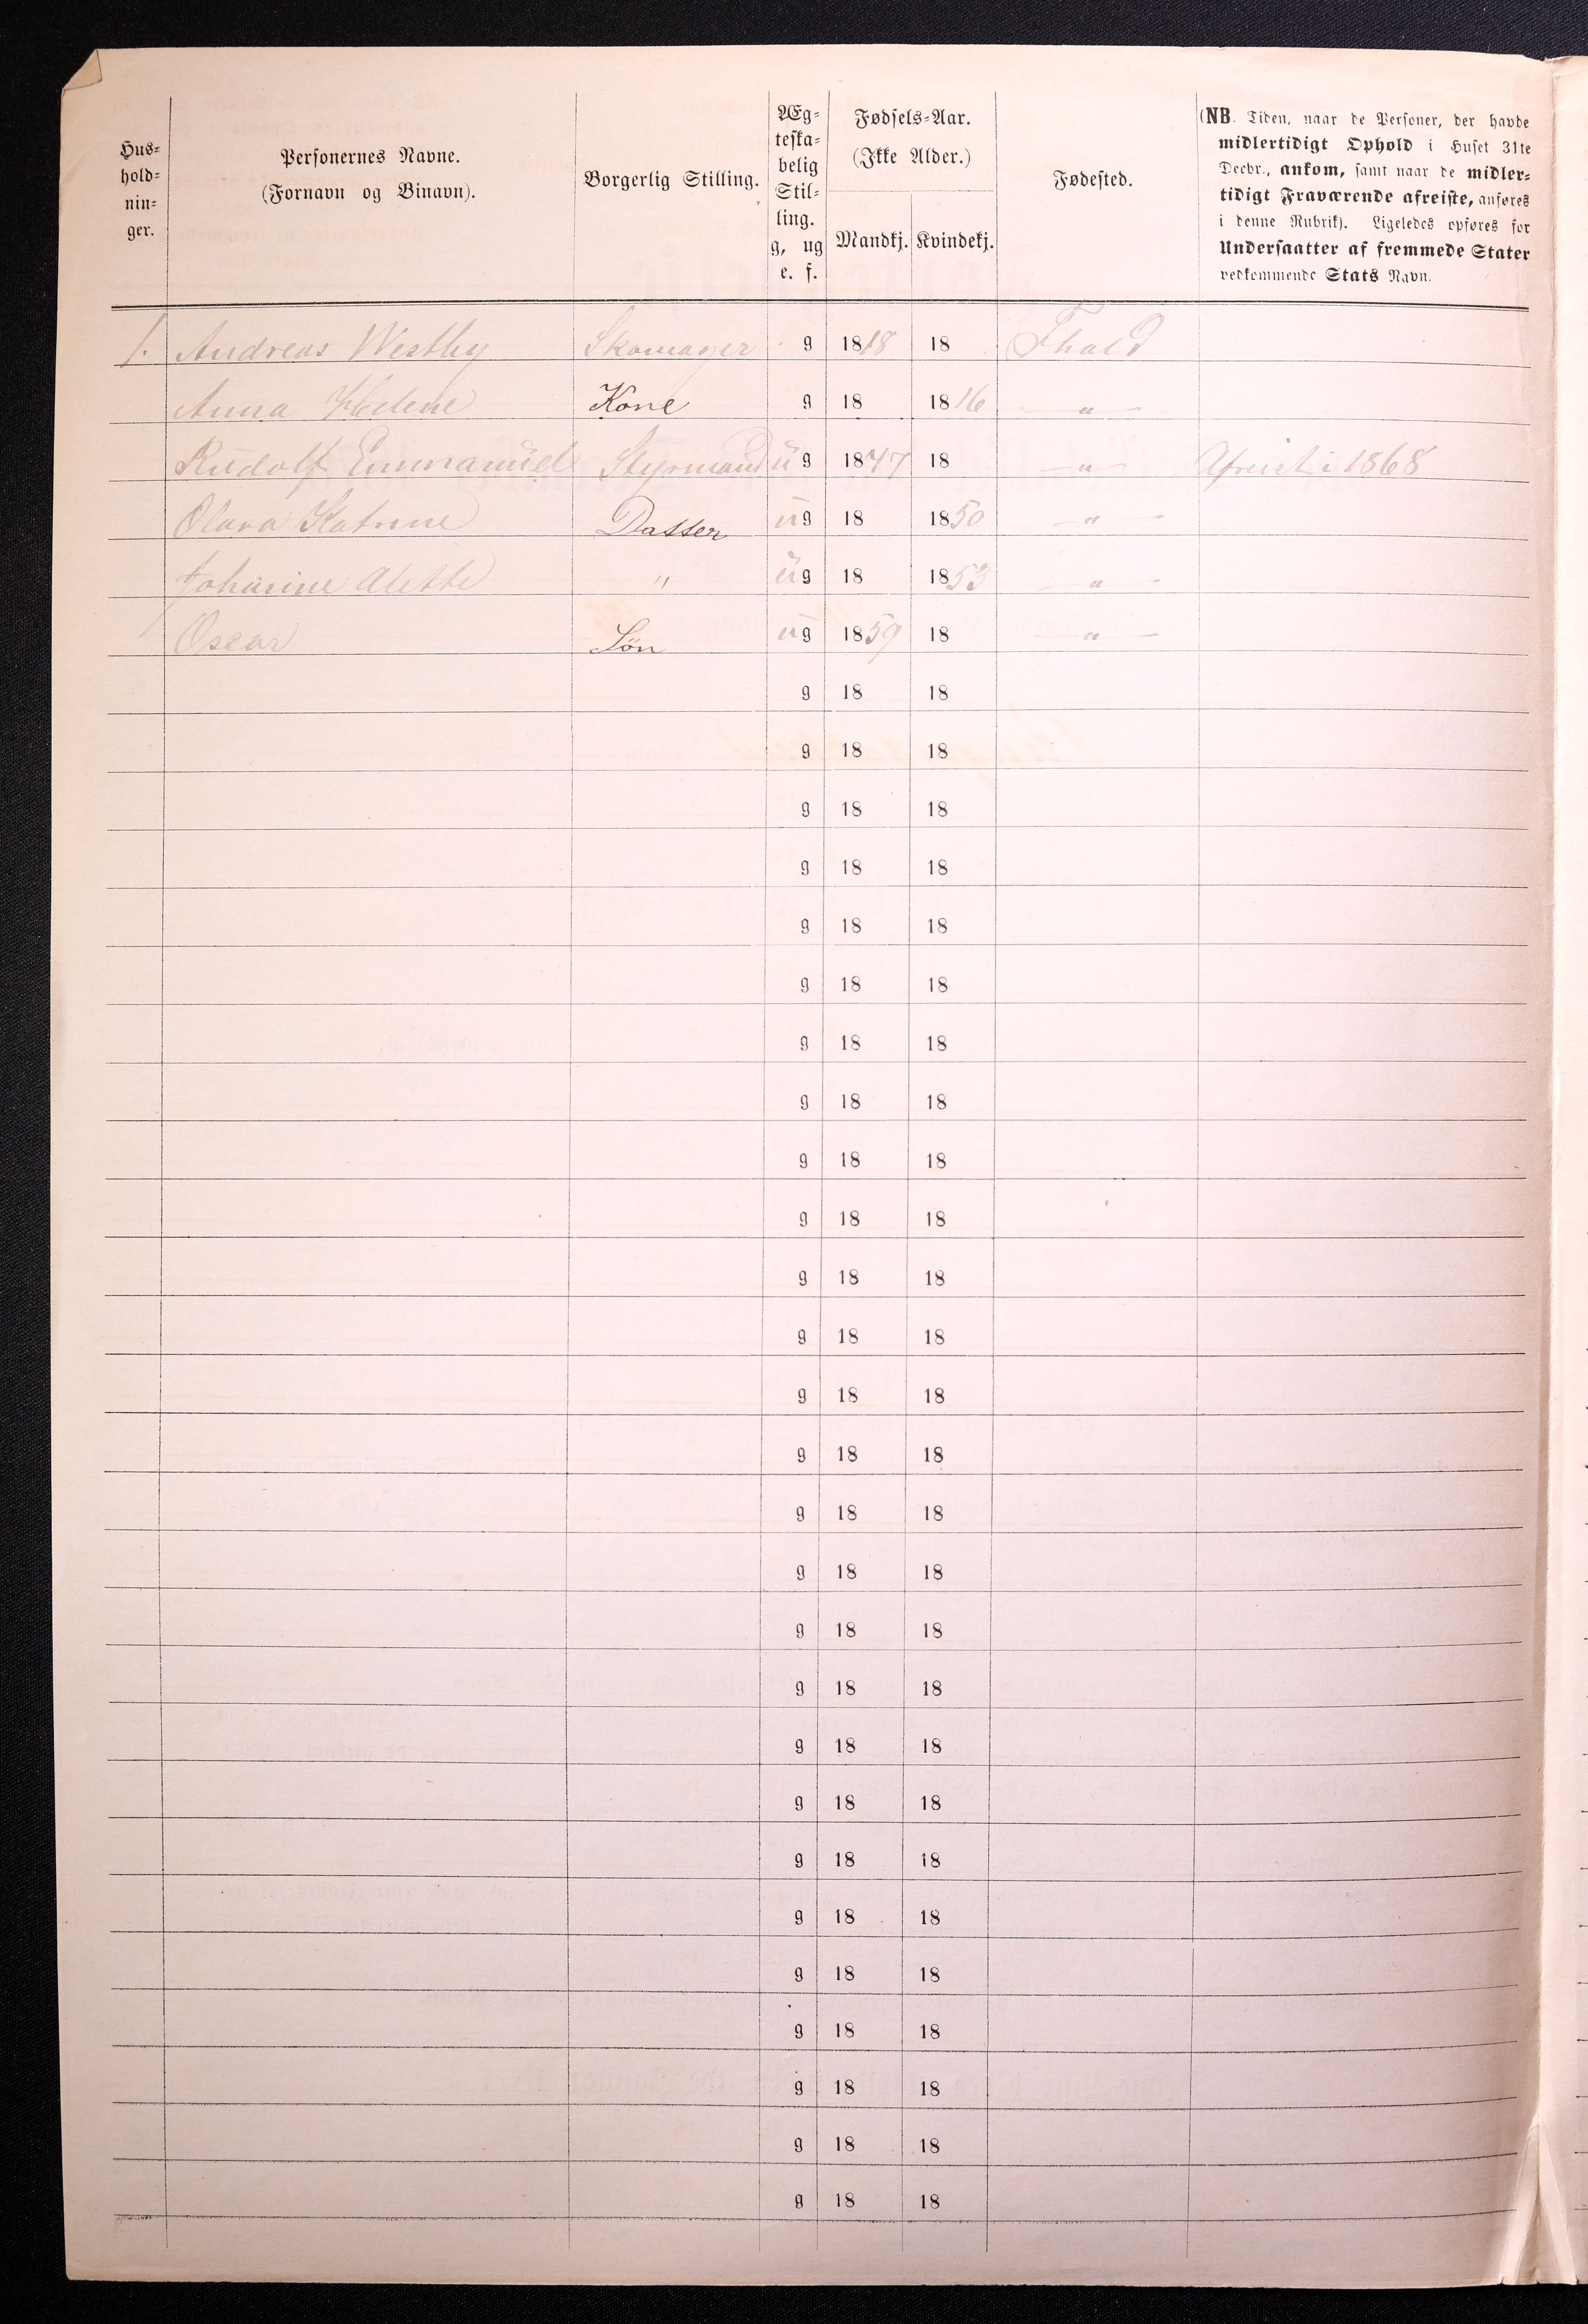 Hus=
hold=
nin=
ger.
Personernes Navne.
(Fornavn og Binavn).
Borgerlig Stilling.
Æg=
teska=
belig
Stil=
ling.
g, ug
e. f.
Fødsels=Aar.
(Ikke Alder.)
Mandkj. Kvindekj.
Fødested.
(NB. Tiden, naar de Personer, der havde
midlertidigt Ophold i Huset 31te
Decbr., ankom, samt naar de midler=
tidigt Fraværende afreiste, anføres
i denne Rubrik). Ligeledes opføres for
Undersaatter af fremmede Stater
vedkommende Stats Navn.
1. Andreas Westby Skomager g 1818 18 Fhald
Anna Helene Kone g 18 1816 — " —
Rudolf Emmanuel Styrmand ug 1847 18 — " — Afreist i 1868
Olava Katrine Datter ug 18 1850 — " —
Johanne Alette " ug 18 1853 — " —
Oscar Søn ug 1859 18 — " —
g 18 18
g 18 18
g 18 18
g 18 18
g 18 18
g 18 18
g 18 18
g 18 18
g 18 18
g 18 18
g 18 18
g 18 18
g 18 18
g 18 18
g 18 18
g 18 18
g 18 18
g 18 18
g 18 18
g 18 18
g 18 18
g 18 18
g 18 18
g 18 18
g 18 18
g 18 18
g 18 18